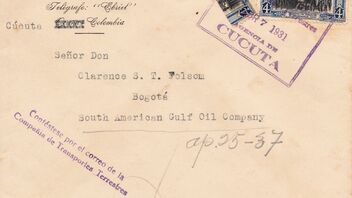 Telégrafo: "Ebriel"
Cúcuta Colombia
7 1931
AGENCIA DE
CUCUTA
4
Señor Don
Clarence S. T. Folsom
Bogotá
South American Gulf Oil Company
ap. 25-37
Contéstese por el correo de la
Compañía de Transportes Terrestres